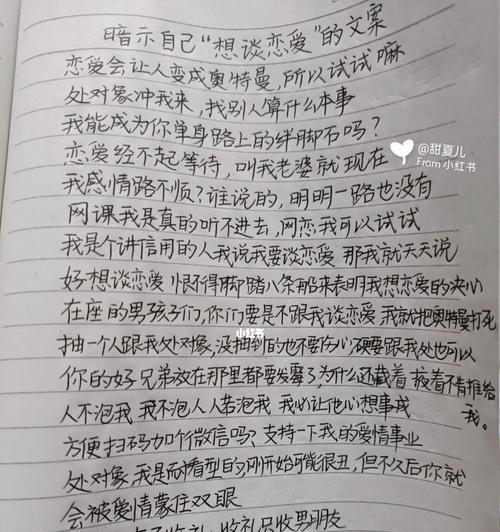 暗示自己“想谈恋爱”的文案
恋爱会让人变成奥特曼，所以试试嘛
处对象冲我来，找别人算什么本事
我能成为你单身路上的绊脚石吗？
恋爱经不起等待，叫我老婆就现在
@甜夏儿
From 小红书
我感情路不顺？谁说的，明明一路也没有
网课我是真的听不进去，网恋我可以试试
我是个讲信用的人我说我要谈恋爱 那我就天天说
好想谈恋爱 恨不得脚踏八条船来表明我想恋爱的决心
在座的男孩子们，你们要是不跟我谈恋爱 我就把奥特曼打死
小红书
抽一个人跟我处对象，没抽到的也不要伤心 硬要跟我处也可以
你的好兄弟放在那里都要发霉了，为什么还藏着掖着不肯推给我。
人不泡我 我不泡人 人若泡我 我必让他心想事成
方便扫码加个微信吗？支持一下我的爱情事业
处对象，我是耐看型的 刚开始可能很丑，但不久后你就
会被爱情蒙住双眼
收礼只收男朋友